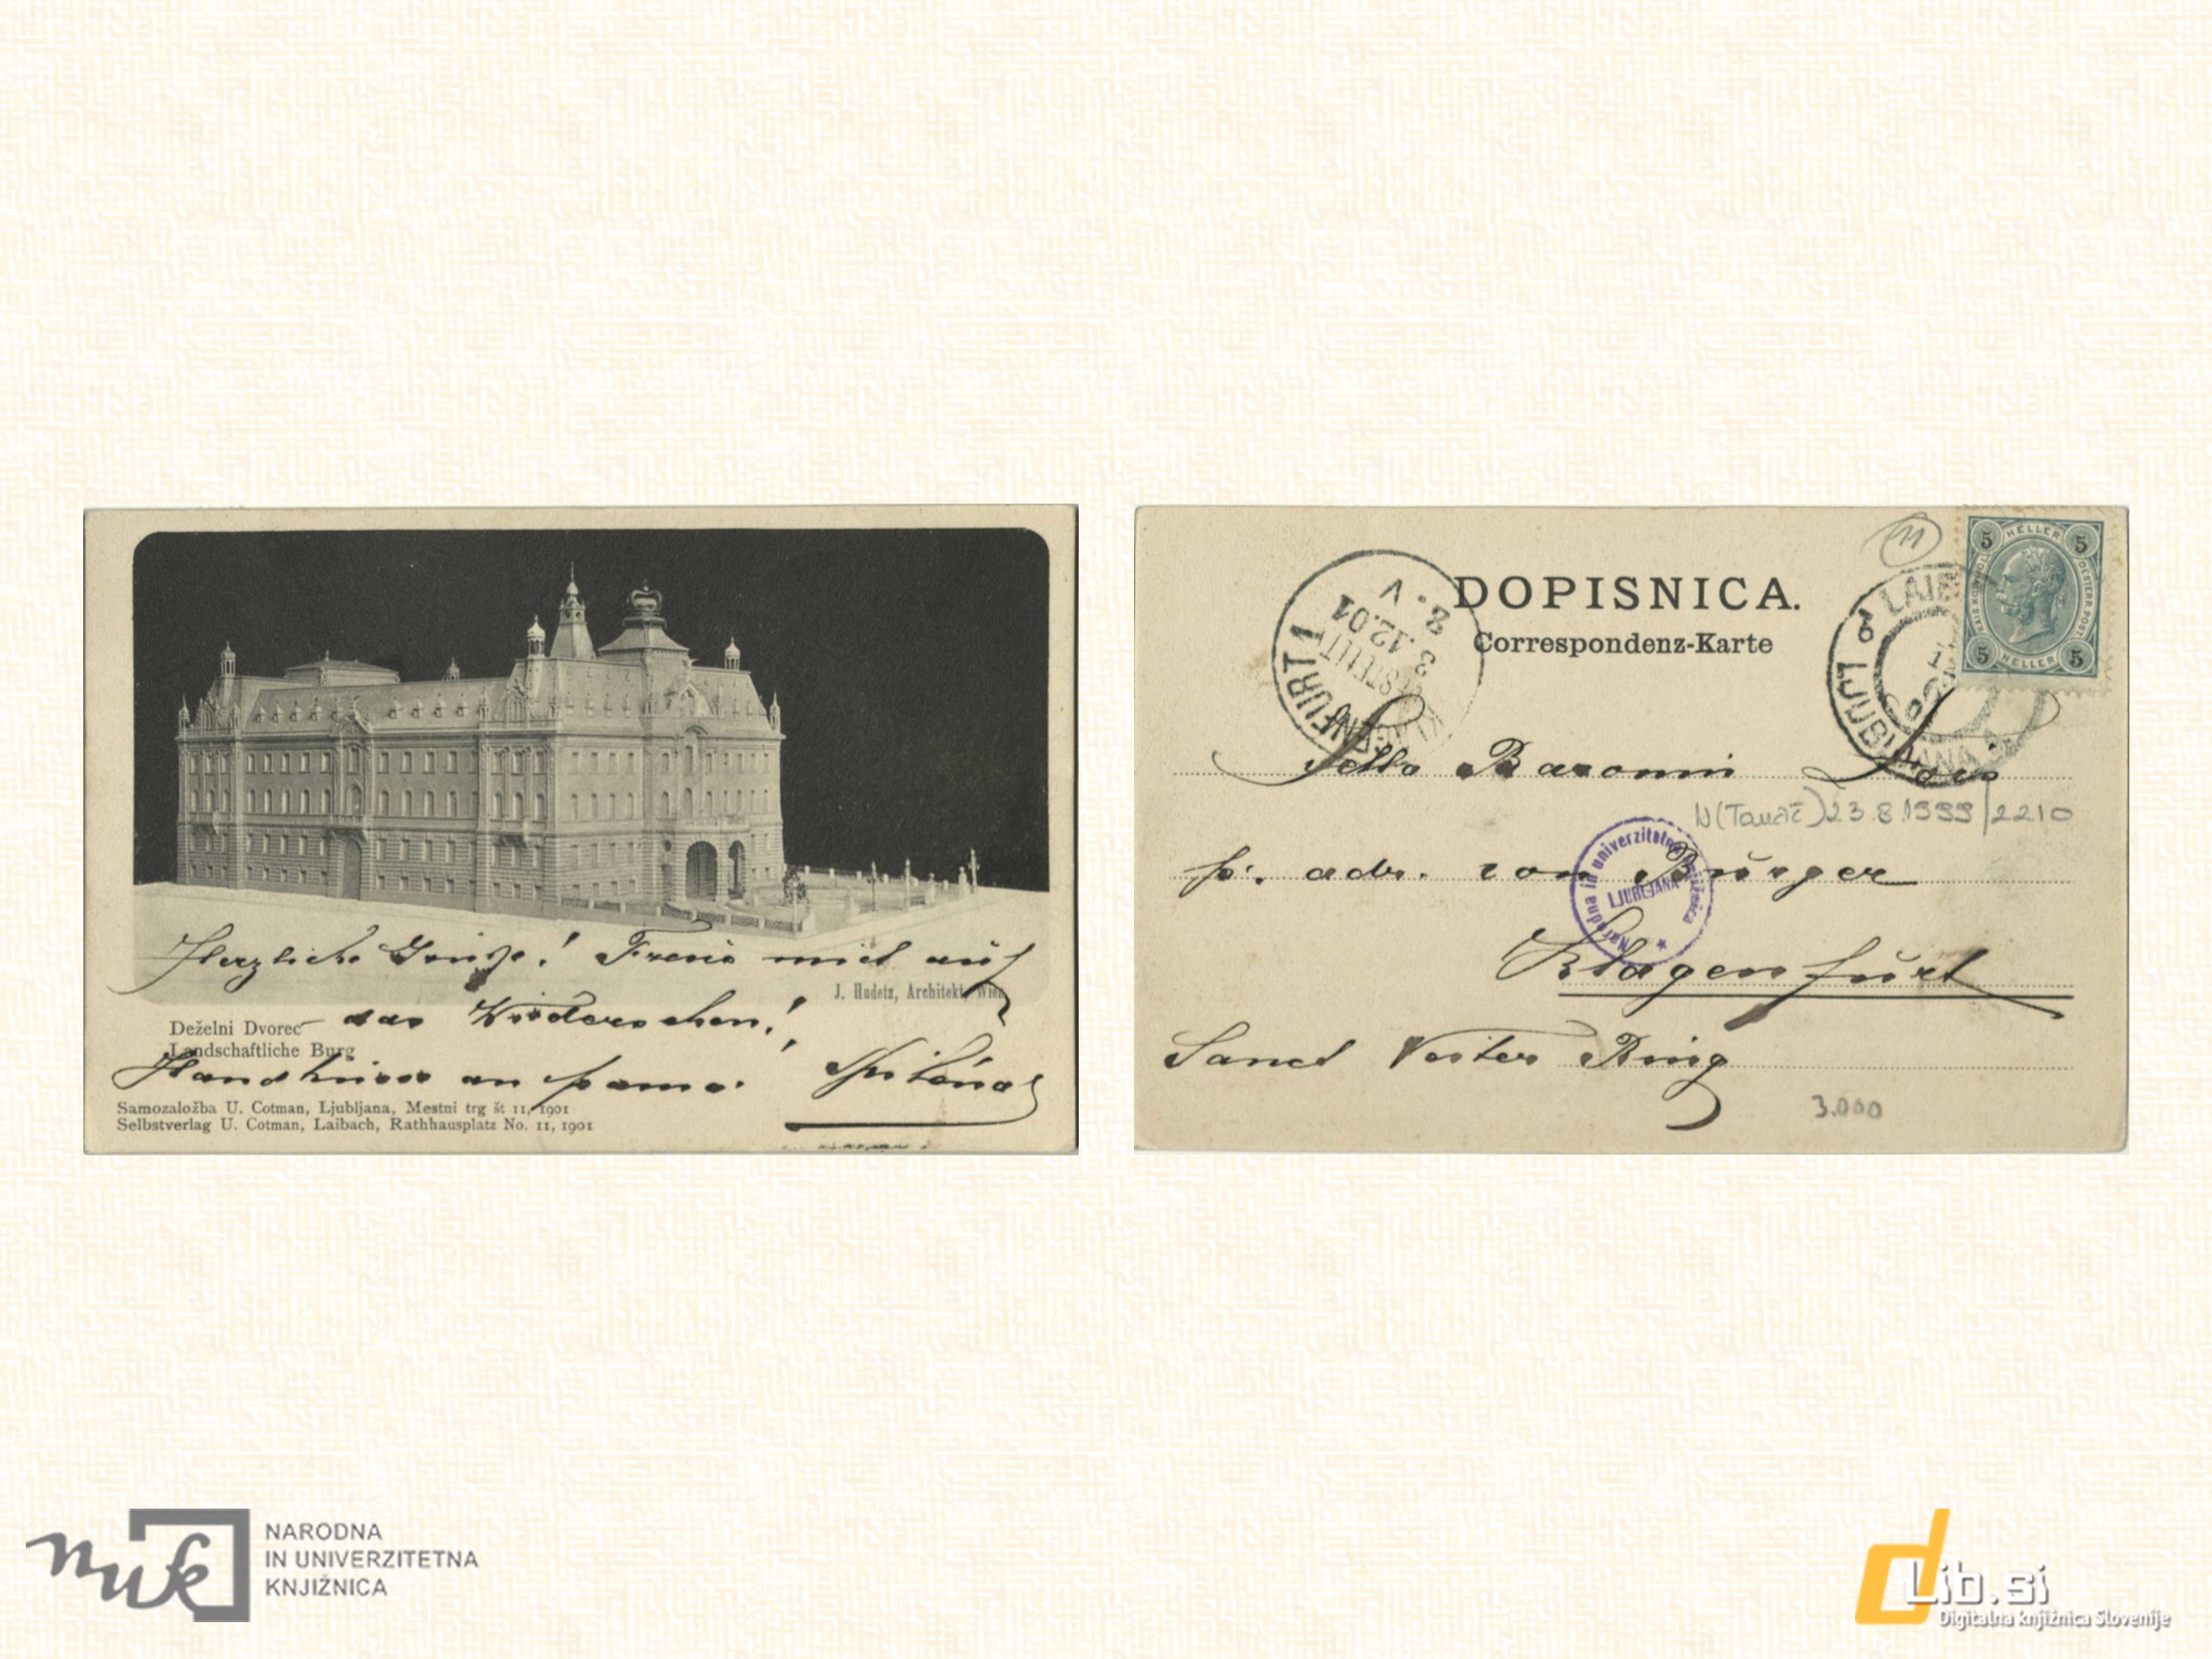 Herzliche Grüße! Freue mich auf
J. Hudetz, Architekt, Wien
das Wiedersehen!
Deželni Dvorec
Landschaftliche Burg
Handküsse an
Samozaložba U. Cotman, Ljubljana, Mestni trg št 11, 1901
Selbstverlag U. Cotman, Laibach, Rathhausplatz No. 11, 1901
11
5 HELLER 5
5 HELLER 5
DOPISNICA.
Correspondenz-Karte
KLAGENFURT 1
3.12.01
8.V
BESTELLT
LAIBACH
LJUBLJANA
Baronin
N(Taučič)23.8.1999/2210
p. adr. von Bürger
Narodna in univerzitetna knjižnica
LJUBLJANA
Klagenfurt
Sanct Veiter Ring
3.000
nuk
NARODNA
IN UNIVERZITETNA
KNJIŽNICA
dLib.si
Digitalna knjižnica Slovenije